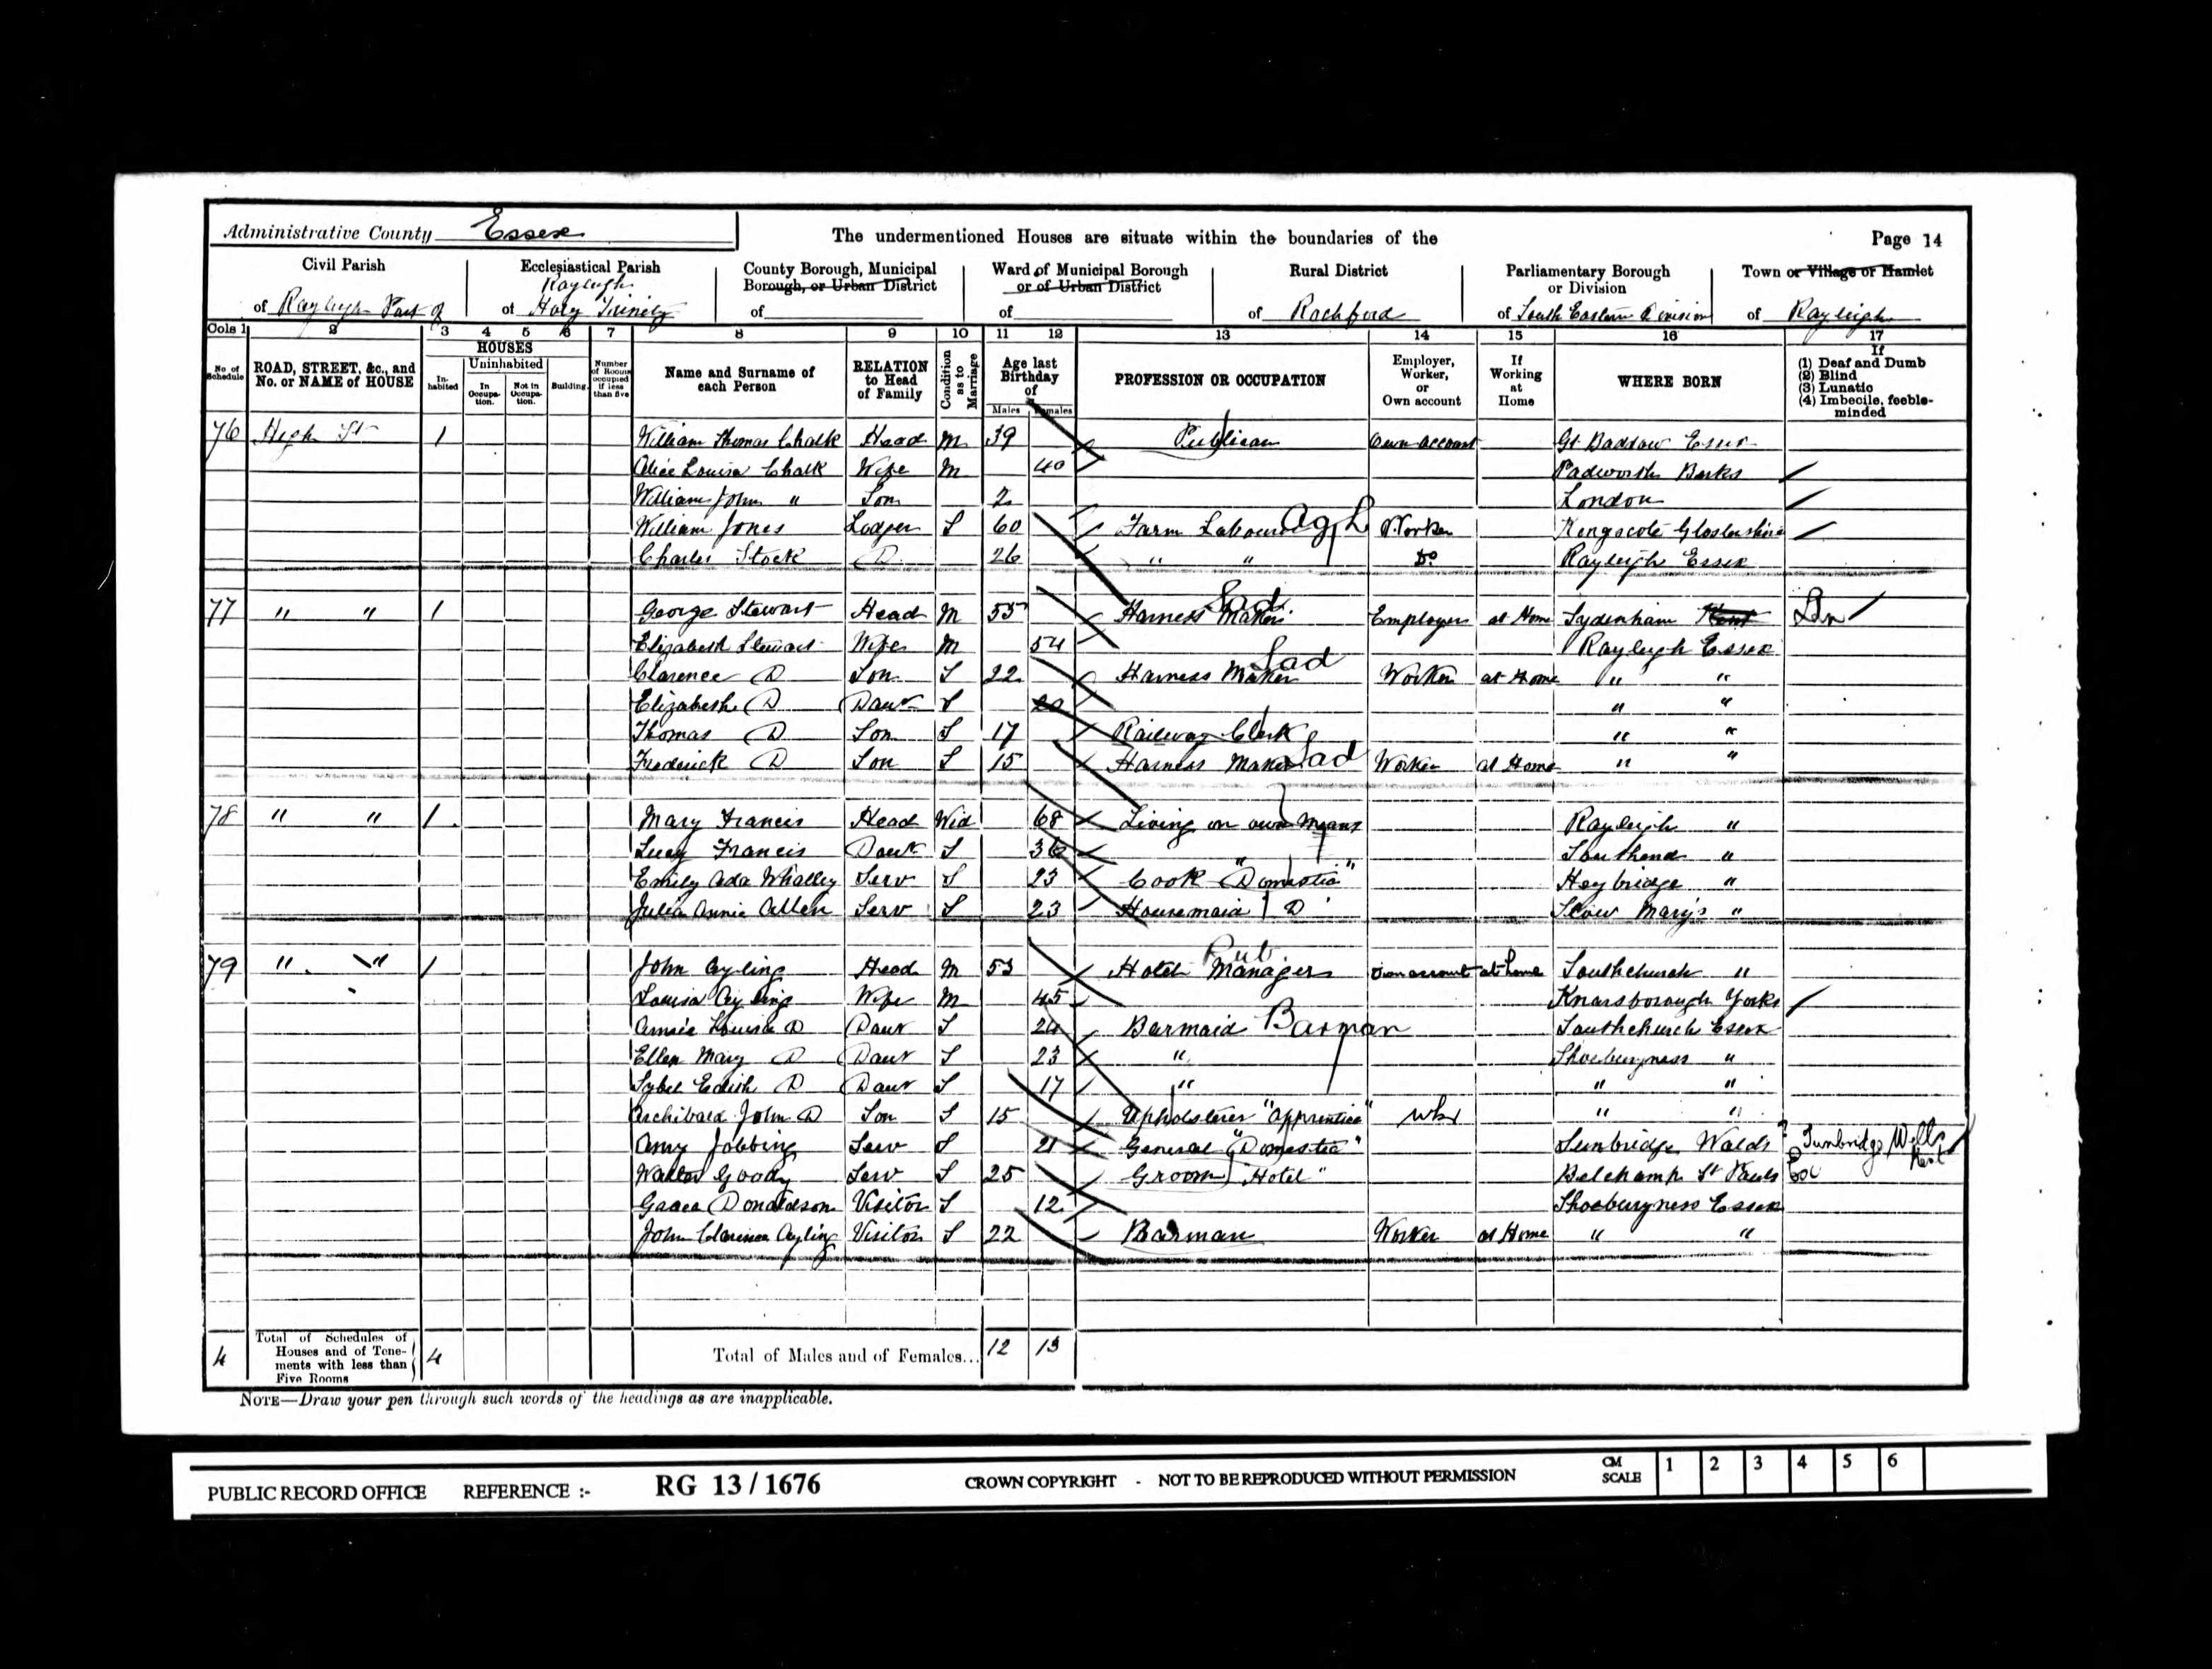 Administrative County Essex
The undermentioned Houses are situate within the boundaries of the
Page 14
Civil Parish
of Rayleigh Part of
Ecclesiastical Parish
Rayleigh
of Holy Trinity
County Borough, Municipal
Borough, or Urban District
of
Ward of Municipal Borough
or of Urban District
of
Rural District
of Rochford
Parliamentary Borough
or Division
of South Eastern Division
Town or Village or Hamlet
of Rayleigh
Cols 1 2 3 4 5 6 7 8 9 10 11 12 13 14 15 16 17
No of Schedule
ROAD, STREET, &c., and No. or NAME of HOUSE
HOUSES
In-habited
Uninhabited
In Occupa-tion.
Not in Occupa-tion.
Building.
Number of Rooms occupied if less than five
Name and Surname of each Person
RELATION to Head of Family
Condition as to Marriage
Age last Birthday of
Males Females
PROFESSION OR OCCUPATION
Employer, Worker, or Own account
If Working at Home
WHERE BORN
If
(1) Deaf and Dumb
(2) Blind
(3) Lunatic
(4) Imbecile, feeble-minded
76 High St 1 William Thomas Chalk Head M 39 Publican Own account Gt Baddow Essex
Alice Louisa Chalk Wife M 40 Padworth Berks
William John " Son 2 London
William Jones Lodger S 60 Farm Labourer Ag L Worker Kingscote Glostershire
Charles Stock D 26 " " Do Rayleigh Essex
77 " " 1 George Stewart Head M 55 Harness Maker Sad Employer at Home Sydenham Kent Ldn
Elizabeth Stewart Wife M 54 Rayleigh Essex
Clarence D Son S 22 Harness Maker Sad Worker at Home " "
Elizabeth D Daur S 20 " "
Thomas D Son S 17 Railway Clerk " "
Frederick D Son S 15 Harness Maker Sad Worker at Home " "
78 " " 1 Mary Francis Head Wid 68 Living on own Means Rayleigh "
Lucy Francis Daur S 36 Southend "
Emily Ada Whalley Serv S 23 Cook "Domestic" Heybridge "
Julia Annie Allen Serv S 23 Housemaid D Stow Mary's "
79 " " 1 John Ayling Head M 53 Hotel Manager Pub Own account at home Southchurch "
Louisa Ayling Wife M 45 Knarsborough Yorks
Louisa D Daur S 24 Barmaid Barman Southchurch Essex
Ellen Mary D Daur S 23 " Shoeburyness "
Sybel Edith D Daur S 17 " " "
Archibald John D Son S 15 Upholsterer "Apprentice" wkr " "
Amy Jobbing Serv S 21 General "Domestic" Tunbridge Walds ? Tunbridge Wells Kent
Walter Goody Serv S 25 Groom "Hotel" Belchamp St Pauls Esx
Grace Donaldson Visitor S 12 Shoeburyness Essex
John Clarence Ayling Visitor S 22 Barman Worker at Home " "
4 Total of Schedules of Houses and of Tene-ments with less than Five Rooms 4 Total of Males and of Females... 12 13
NOTE—Draw your pen through such words of the headings as are inapplicable.
PUBLIC RECORD OFFICE REFERENCE :- RG 13 / 1676 CROWN COPYRIGHT - NOT TO BE REPRODUCED WITHOUT PERMISSION CM SCALE 1 2 3 4 5 6